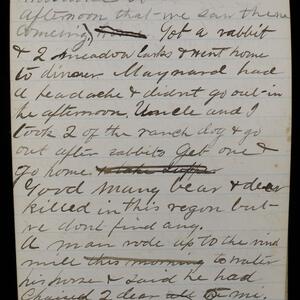 afternoon that we saw them
coming). Got a rabbit
& 2 meadow larks & went home
to dinner Maynard had
a headache & didn't go out in
he afternoon, Uncle and I
took 2 of the ranch dog & go
out after rabbits Get one &
go home to take supper
Good many bear & deer
killed in this regon but
we dont find any.
A man rode up to the wind
mile this morning to water
his horse & said he had
Chased 2 dear all 10 mi.